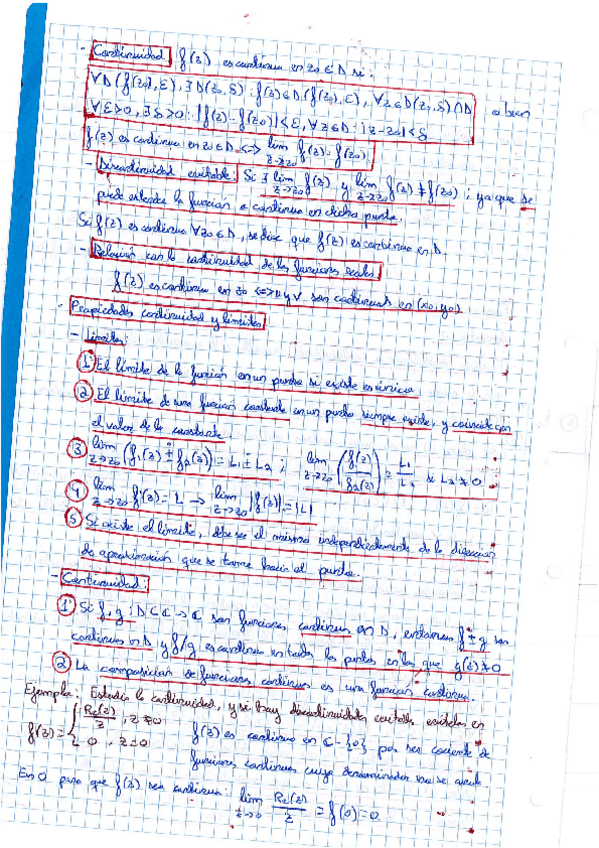 - Continuidad: f(z) es continua en z₀ ∈ D si:
∀D(f(z₀), ε), ∃D(z₀, δ): f(z) ∈ D(f(z₀), ε), ∀z ∈ D(z₀, δ) ∩ D o bien
∀ε>0, ∃δ>0: |f(z) - f(z₀)| < ε, ∀z ∈ D: |z - z₀| < δ
f(z) es continua en z₀ ∈ D <-> lim z→z₀ f(z) = f(z₀)
- Discontinuidad evitable: Si ∃ lim z→z₀ f(z) y lim z→z₀ f(z) ≠ f(z₀); ya que se
puede extender la función a continua en dicho punto.
Si f(z) es continua ∀z₀ ∈ D, se dice que f(z) es continua en D.
- Relación con la continuidad de las funciones reales
f(z) es continua en z₀ <=> u y v son continuas en (x₀, y₀)
- Propiedades continuidad y límites
- Límites:
① El límite de la función en un punto si existe es único
② El límite de una función constante en un punto siempre existe, y coincide con
el valor de la constante.
③ lim z→z₀ (f₁(z) ± f₂(z)) = L₁ ± L₂ ; lim z→z₀ (f₁(z)/f₂(z)) = L₁/L₂ si L₂ ≠ 0
④ lim z→z₀ f(z) = L → lim z→z₀ |f(z)| = |L|
⑤ Si existe el límite, debe ser el mismo independientemente de la dirección
de aproximación que se tome hacia el punto.
- Continuidad:
① Si f, g: D ⊂ C → C son funciones continuas en D, entonces f ± g son
continuas en D y f/g es continua en todos los puntos en los que g(z) ≠ 0
② La composición de funciones continuas es una función continua.
Ejemplo: Estudia la continuidad, y si hay discontinuidades evitables en
f(z) = { Re(z)/z, z ≠ 0 f(z) es continua en C - {0} por ser cociente de
0, z = 0 funciones continuas cuyo denominador no se anula.
En 0 para que f(z) sea continua: lim z→0 Re(z)/z = f(0) = 0